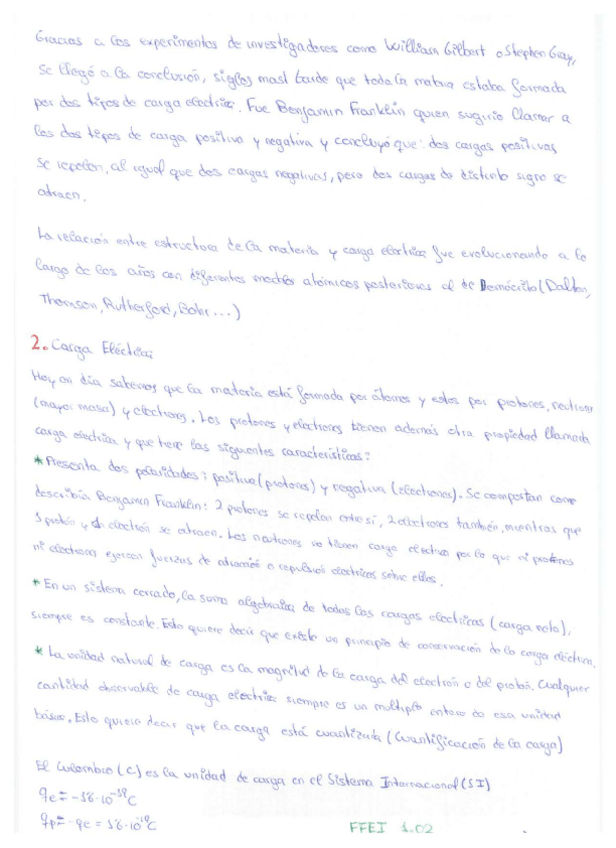 Gracias a los experimentos de investigadores como William Gilbert o Stephen Gray,
se llegó a la conclusión, siglos mast tarde que toda la materia estaba formada
por dos tipos de carga eléctrica. Fue Benjamin Franklin quien sugirio llamar a
los dos tipos de carga positiva y negativa y concluyó que: dos cargas positivas
se repelen, al igual que dos cargas negativas, pero dos cargas de distinto signo se
atraen.
La relación entre estructura de la materia y carga eléctrica fue evolucionando a lo
largo de los años con diferentes modelos atómicos posteriores al de Demócrito (Dalton,
Thomson, Rutherford, Bohr...)
2. Carga Eléctrica:
Hoy en día sabemos que la materia está formada por átomos y estos por protones, neutrones
(mayor masa) y electrones. Los protones y electrones tienen además otra propiedad llamada
carga eléctrica y que tiene las siguientes características:
* Presenta dos polaridades: positiva (protones) y negativa (electrones). Se comportan como
describía Benjamin Franklin: 2 protones se repelen entre sí, 2 electrones también, mientras que
1 protón y 1 electrón se atraen. Los neutrones no tienen carga eléctrica por lo que ni protones
ni electrones ejercen fuerzas de atracción o repulsión eléctricas sobre ellos.
* En un sistema cerrado, la suma algebraica de todas las cargas electricas (carga neta),
siempre es constante. Esto quiere decir que existe un principio de conservación de la carga eléctrica.
* La unidad natural de carga es la magnitud de la carga del electrón o del protón. Cualquier
cantidad observable de carga eléctrica siempre es un multiplo entero de esa unidad
básica. Esto quiere decir que la carga está cuantizada (Cuantificación de la carga)
El Culombio (C) es la unidad de carga en el Sistema Internacional (SI)
qe = -1'6·10⁻¹⁹C
qp = -qe = 1'6·10⁻¹⁹C
FFEI 1.02